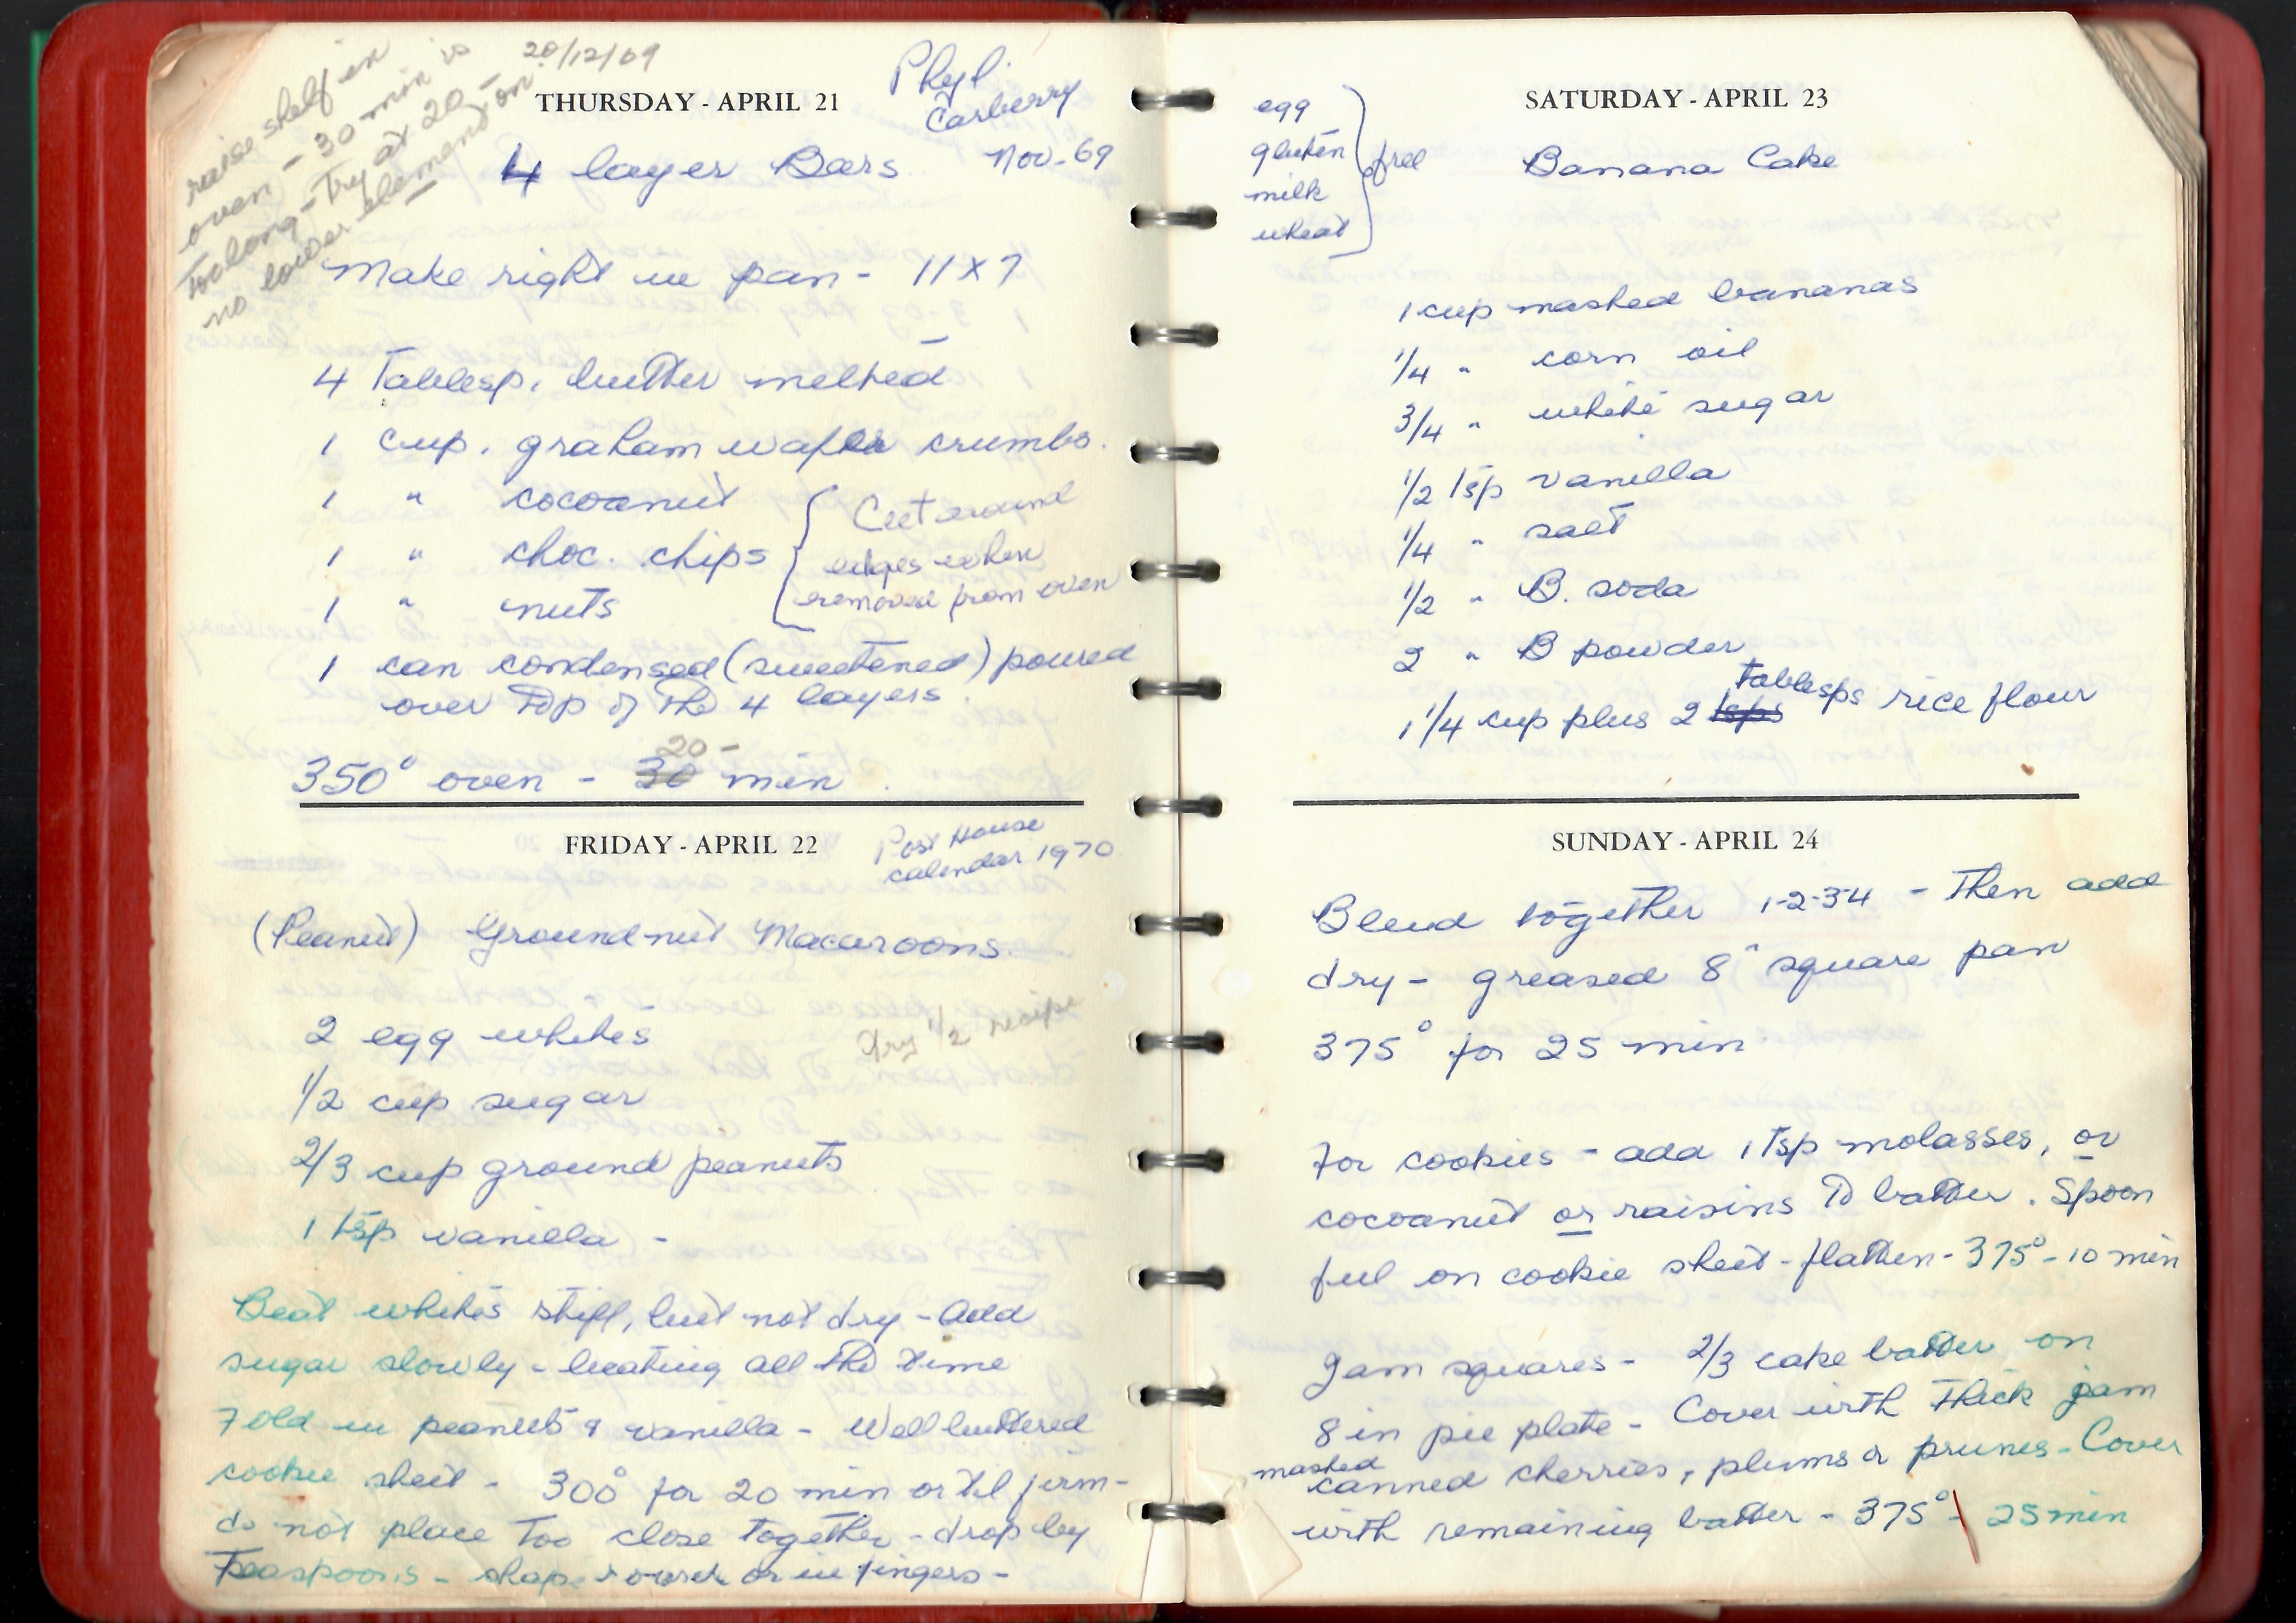 raise shelf in
oven - 30 min is
too long - Try at 20 -
no lower element on
20/12/69
THURSDAY - APRIL 21
Phyl.
Carberry
Nov - 69
4 layer Bars
Make right in pan - 11 X 7
4 Tablesp. butter melted
1 cup. graham wafer crumbs.
1 " cocoanut
1 " choc. chips
1 " nuts
Cut around
edges when
removed from oven
1 can condensed (sweetened) poured
over top of the 4 layers.
20 -
350° oven - 30 min.
FRIDAY - APRIL 22
Post House
calendar 1970
(Peanut) Groundnut Macaroons.
Try 1/2 recipe
2 egg whites
1/2 cup sugar
2/3 cup ground peanuts
1 tsp vanilla -
Beat whites stiff, but not dry - Add
sugar slowly - beating all the time
Fold in peanuts & vanilla - Well buttered
cookie sheet - 300° for 20 min or til firm -
do not place too close together - drop by
Teaspoons - shape round or in fingers -
SATURDAY - APRIL 23
egg
gluten
milk
wheat
free
Banana Cake
1 cup mashed bananas
1/4 " corn oil
3/4 " white sugar
1/2 tsp vanilla
1/4 " salt
1/2 " B. soda
2 " B powder
1 1/4 cup plus 2 tsps Tablesps rice flour
SUNDAY - APRIL 24
Blend together 1-2-3-4 - Then add
dry - greased 8" square pan
375° for 25 min.
For cookies - add 1 Tsp molasses, or
cocoanut or raisins to batter. Spoon
ful on cookie sheet - flatten - 375° - 10 min
Jam squares - 2/3 cake batter on
8 in pie plate - Cover with thick jam
mashed
canned cherries, plums or prunes - Cover
with remaining batter - 375° - 25 min